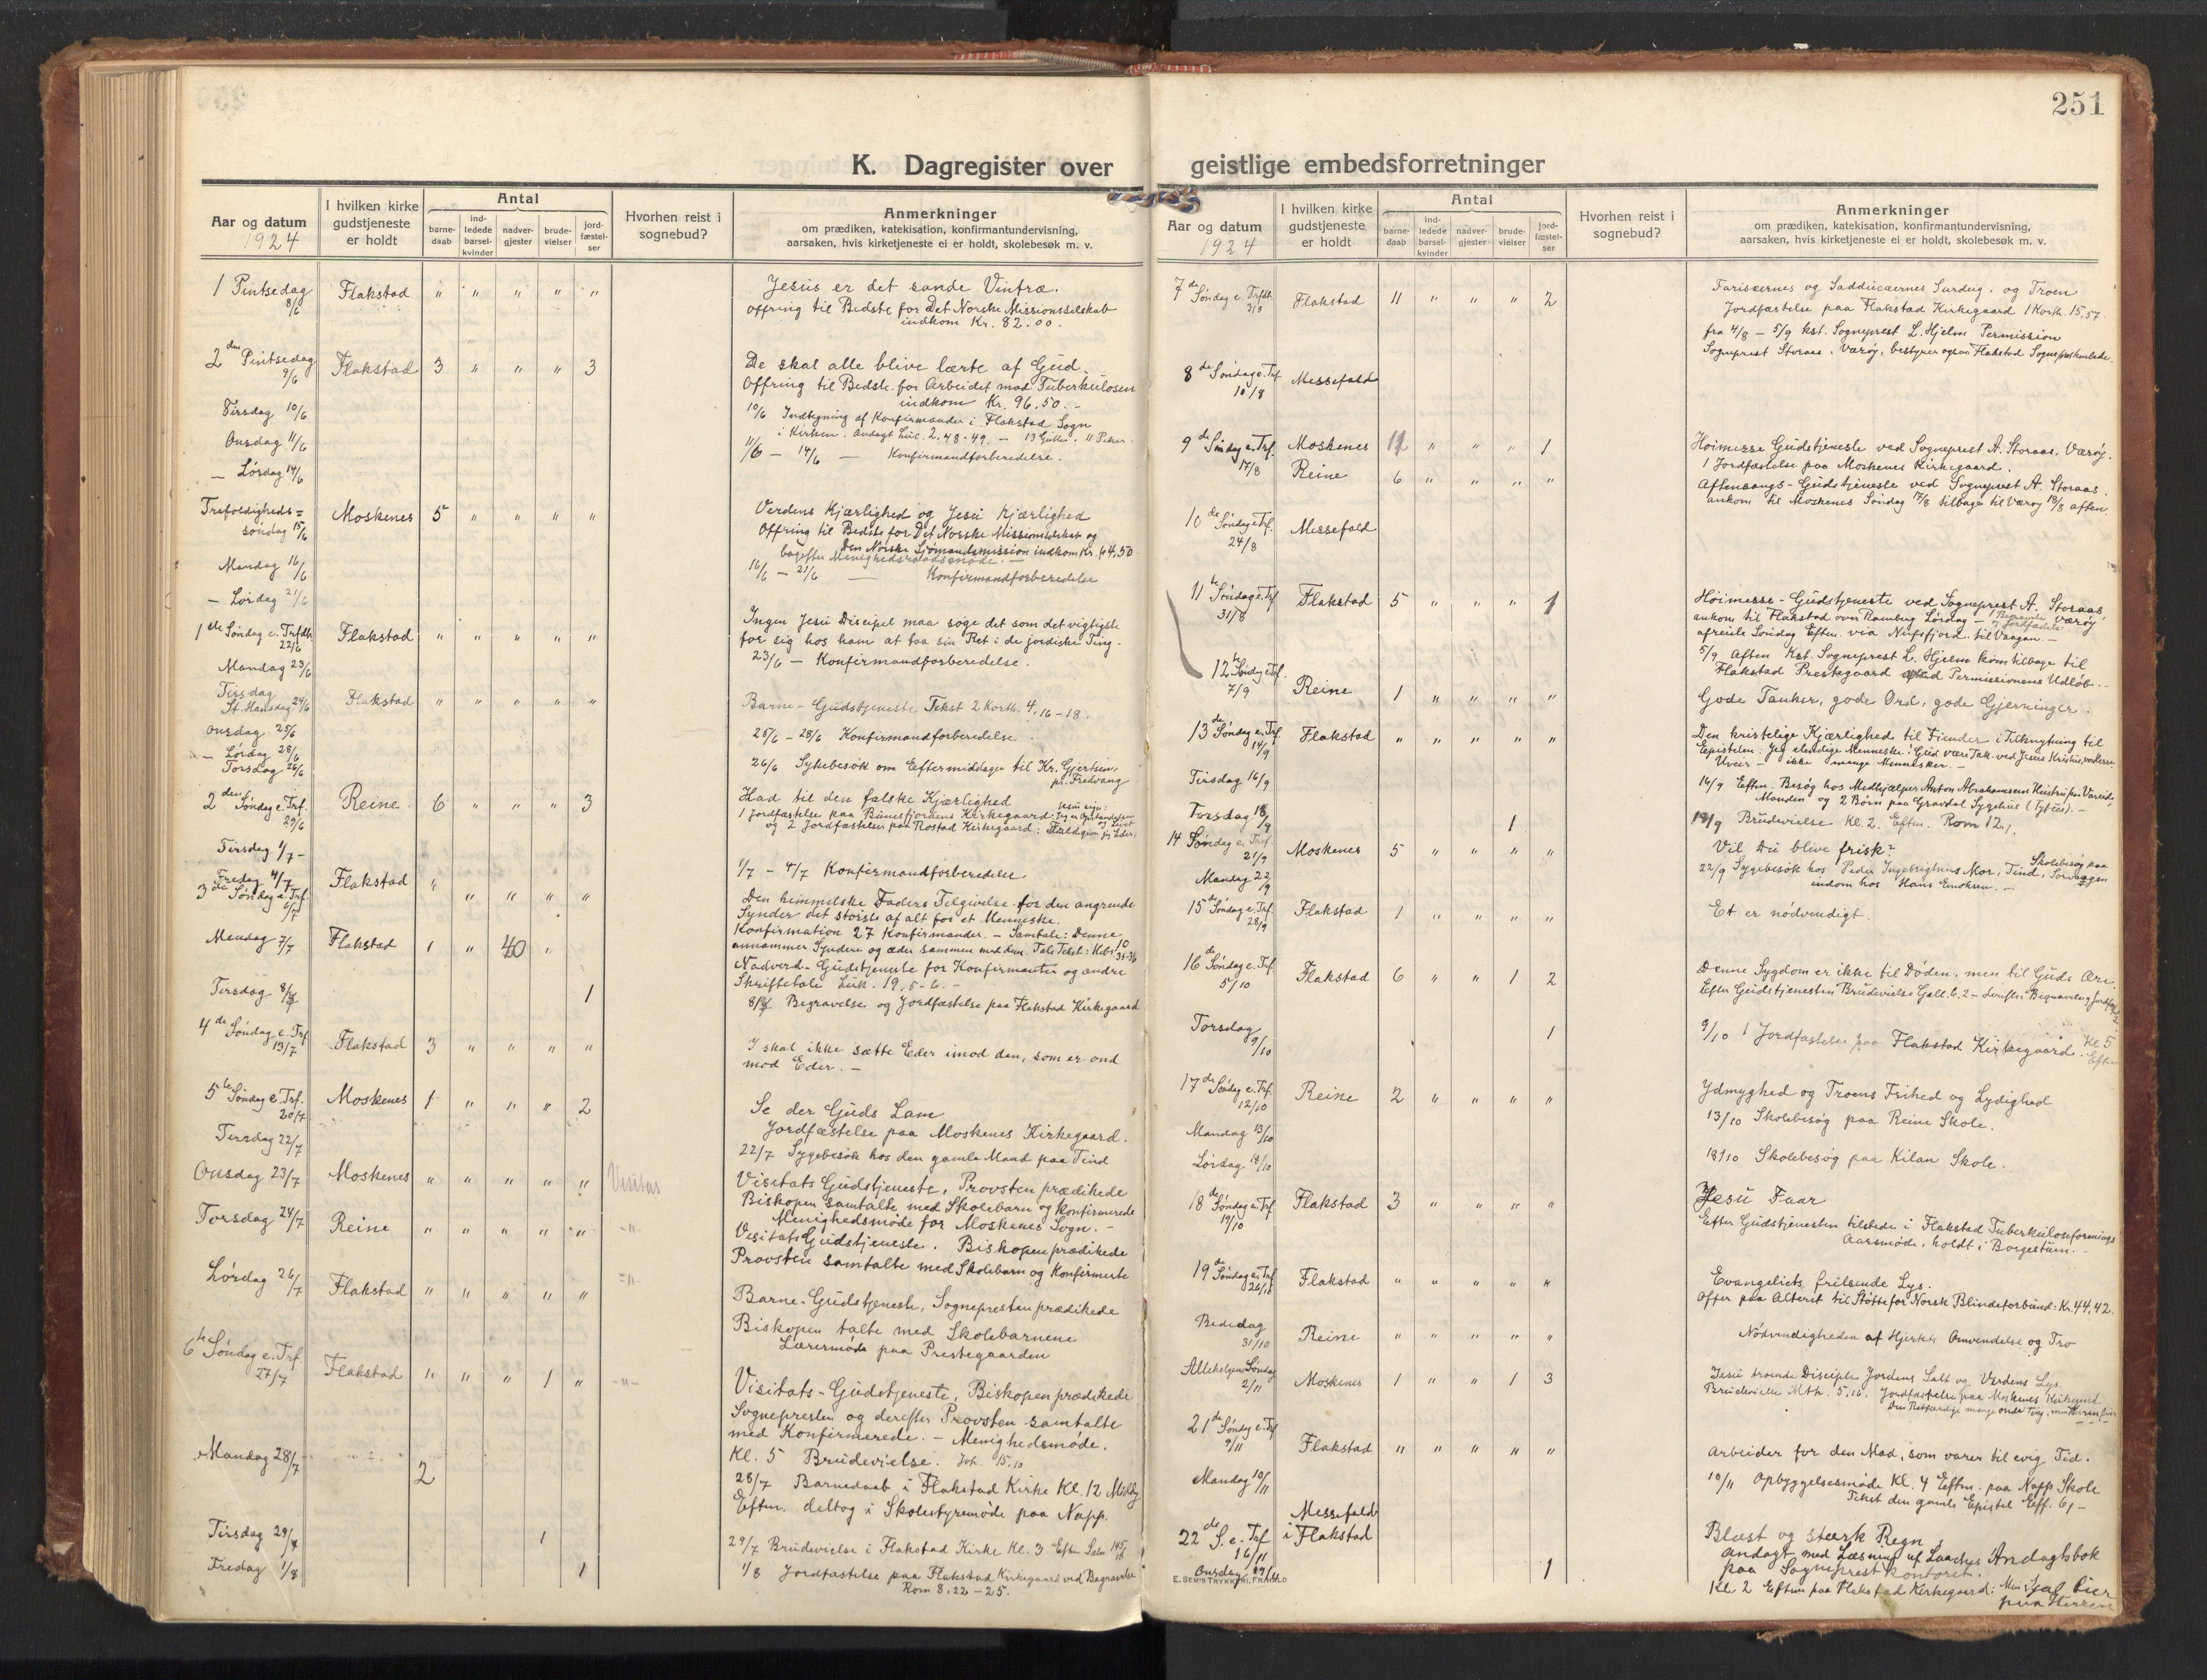 251
K. Dagregister over geistlige embedsforretninger
Aar og datum
1924
I hvilken kirke gudstjeneste er holdt
Antal
barne-daab
ind-ledede barsel-kvinder
nadver-gjester
brude-vielser
jord-fæstel-ser
Hvorhen reist i sognebud?
Anmerkninger
om prædiken, katekisation, konfirmantundervisning,
aarsaken, hvis kirketjeneste ei er holdt, skolebesøk m. v.
1 Pintsedag 8/6 Flakstad " " " " " Jesus er det sande Vintræ.
Offring til Bedste for Det Norske Missionsselskab
indkom Kr. 82.00.
2den Pintsedag 9/6 Flakstad 3 " " " 3 De skal alle blive lærte af Gud.
Offring til Bedste for Arbeidet mod Tuberkulosen
indkom Kr. 96.50.-
Tirsdag 10/6 10/6 Indtegning af Konfirmander i Flakstad Sogn
i Kirken. Andagt Luc. 2,48-49. - 13 Gutter, 11 Piker.
Onsdag 11/6 11/6 - 14/6 - Konfirmandforberedelse.
- Lördag 14/6
Trefoldigheds=
söndag 15/6 Moskenes 5 " " " " Verdens Kjærlighed og Jesu Kjærlighed
Offring til Bedste for Det Norske Missionsselskab og
Den Norske Sjömandsmission indkom Kr. 64,50
bagefter Menighedsraadsmøde. -
Mandag 16/6 16/6 - 21/6 - Konfirmandforberedelse
- Lördag 21/6
1ste Söndag e. Trfdh. 22/6 Flakstad " " " " " Ingen Jesu Discipel maa söge det som det vigtigste
for sig hos ham at faa sin Ret i de jordiske Ting.
Mandag 23/6 23/6 - Konfirmandforberedelse.
Tirsdag
St. Hansdag 24/6 Flakstad " " " " " Barne-Gudstjeneste Tekst 2 Korth. 4,16-18.
Onsdag 25/6 25/6 - 28/6 Konfirmandforberedelse
- Lördag 28/6
Torsdag 26/6 26/6 Sykebesök om Eftermiddagen til Kr. Gjertsen
pr. Fredvang
2den Söndag e. Trf. 29/6 Reine 6 " " " 3 Had til den falske Kjærlighed
1 Jordfæstelse paa Bunesfjordens Kirkegaard:
og 2 Jordfæstelser paa Rostad Kirkegaard:
Tirsdag 1/7 - 1/7 - 4/7 Konfirmandforberedelse
Fredag 4/7
3die Söndag e. Trf. 6/7 Flakstad " " " " " Den himmelske Faders Tilgivelse for den angrende
Synder det störste af alt for et Menneske.
Konfirmation 27 Konfirmander. - Samtale: Denne
annammer Syndere og æder sammen med dem. Tale Tekst: Hebr. 10 35-36
Mandag 7/7 Flakstad 1 " 40 " Nadverd-Gudstjeneste for Konfirmanter og andre
Skriftetale Luk. 19,5-6. -
Tirsdag 8/7 1 8/7 Begravelse og Jordfæstelse paa Flakstad Kirkegaard
4de Söndag e. Trf 13/7 Flakstad 3 " " " " I skal ikke sætte Eder imod den, som er ond
mod Eder. -
5te Söndag e. Trf. 20/7 Moskenes 1 " " " 2 Se der Guds Lam
Jordfæstelse paa Moskenes Kirkegaard.
Tirsdag 22/7 22/7 Sygebesök hos den gamle Mand paa Tind
Onsdag 23/7 Moskenes " " " " " Visitas Visitats Gudstjeneste, Provsten prædikede
Biskopen samtalte med Skolebarn og konfirmerede
Menighedsmöde for Moskenes Sogn. -
Torsdag 24/7 Reine " " " " " -"- Visitats Gudstjeneste. Biskopen prædikede
Provsten samtalte med Skolebarn og Konfirmerte
Lördag 26/7 Flakstad " " " " " -"- Barne-Gudstjeneste, Sognepresten prædikede
Biskopen talte med Skolebarnene
Lærermöde paa Prestegaarden
6te Söndag e. Trf. 27/7 Flakstad " " " 1 " -"- Visitats-Gudstjeneste, Biskopen prædikede
Sognepresten og derefter Provsten samtalte
med Konfirmerede. - Menighedsmöde.
Kl. 5 Brudevielse. Joh. 15,10
Mandag 28/7 2 28/7 Barnedaab i Flakstad Kirke Kl. 12 Middg
Eftm. deltog i Skolestyremöde paa Napp.
Tirsdag 29/7 1 29/7 Brudevielse i Flakstad Kirke Kl. 3 Eftm Salm 145,18
Fredag 1/8 1 1/8 Jordfæstelse paa Flakstad Kirkegaard ved Begravelse
Rom 8,22-25.
Aar og datum
1924
I hvilken kirke gudstjeneste er holdt
Antal
barne-daab
ind-ledede barsel-kvinder
nadver-gjester
brude-vielser
jord-fæstel-ser
Hvorhen reist i sognebud?
Anmerkninger
om prædiken, katekisation, konfirmantundervisning,
aarsaken, hvis kirketjeneste ei er holdt, skolebesøk m. v.
7de Söndag e. Trfdh. 3/8 Flakstad 11 " " " 2 Fariseernes og Sadducæernes Surdeig, og Troen
Jordfæstelse paa Flakstad Kirkegaard 1 Korth. 15,57.
fra 4/8 - 5/9 kst. Sogneprest L. Hjelm Permission
Sogneprest Storaas, Væröy, bestyrer ogsaa Flakstad Sogneprestembede.
8de Söndag e. Trf 10/8 Messefald
9de Söndag e. Trf. 17/8 Moskenes 12 " " " 1 Höimesse Gudstjeneste ved Sogneprest A. Storaas, Væröy.
1 Jordfæstelse paa Moskenes Kirkegaard.
Reine 6 " " " " Aftensangs-Gudstjeneste ved Sogneprest A. Storaas.
ankom til Moskenes Söndag 17/8 tilbage til Væröy 18/8 aften.
10de Söndag e. Trf. 24/8 Messefald
11te Söndag e. Trf 31/8 Flakstad 5 " " " 1 Höimesse-Gudstjeneste ved Sogneprest A. Storaas Væröy
ankom til Flakstad over Ramberg Lördag -
afreiste Söndag Eftm. via Nufsfjord til Vaagan. -
5/9 Aften Kst. Sogneprest L. Hjelm kom tilbage til
Flakstad Prestegaard ved Permissionens Udlöb. -
12te Söndag e. Trf. 7/9 Reine 1 " " " " Gode Tanker, gode Ord, gode Gjerninger.
13de Söndag e. Trf. 14/9 Flakstad " " " " " Den kristelige Kjærlighed til Fiender i Tilknytning til
Epistelen: Jeg elendige Menneske! Gud være Tak ved Jesus Kristus,
Uveir - ikke mange Mennesker. -
Tirsdag 16/9 16/9 Eftm. Besög hos Medhjælper Anton Abrahamsens Hustru
Manden og 2 Börn paa Gravdal Sygehus (Tyfus). -
Torsdag 18/9 1 18/9 Brudevielse Kl. 2. Eftm. Rom 12,1.
14 Söndag e. Tref. 21/9 Moskenes 5 " " " " Vil Du blive frisk?
Mandag 22/9 22/9 Sygebesök hos Peder Ingebrigtsens Mor, Tind, Skolebesög paa Sörvaagen
indom hos Hans Enoksen. -
15de Söndag e. Trf. 28/9 Flakstad 1 " " " " Et er nödvendigt.
16de Söndag e. Trf. 5/10 Flakstad 6 " " 1 2 Denne Sygdom er ikke til Döden, men til Guds Ære.
Efter Gudstjenesten Brudevielse Gall. 6,2 - derefter Begravelse og Jordf.
Torsdag 9/10 1 9/10 1 Jordfæstelse paa Flakstad Kirkegaard. Kl. 5 Eftm
17de Söndag e. Trf. 12/10 Reine 2 " " " " Ydmyghed og Troens Frihed og Lydighed
Mandag 13/10 13/10 Skolebesög paa Reine Skole.
Lördag 18/10 18/10 Skolebesög paa Kilan Skole.
18de Söndag e. Trf 19/10 Flakstad 3 " " " " Jesu Faar
Efter Gudstjenesten tilstede i Flakstad Tuberkuloseforenings
Aarsmöde, holdt i Borgestuen.
19de Söndag e. Trf 26/10 Flakstad " " " " " Evangeliets frelsende Lys.
Offer paa Alteret til Støtte for Norsk Blindeforbund: Kr. 44,42.
Bededag 31/10 Reine " " " " " Nödvendigheden af Hjertets Omvendelse og Tro
Allehelgens Söndag 2/11 Moskenes 1 " " 1 3 Jesu troende Disciple Jordens Salt og Verdens Lys.
Brudevielse Mth. 5,16. Jordfæstelse paa Moskenes Kirkegaard
21de Söndag e. Trf 9/11 Flakstad " " " " " Arbeider for den Mad, som varer til evig Tid.
Mandag 10/11 10/11 Opbyggelsesmöde Kl. 4 Eftm. paa Napp Skole
Tekst den gamle Epistel Eff. 6, -
22de S. e. Trf 16/11 Messefald i Flakstad Blæst og stærk Regn
Andagt med Læsning af Laaches Andagtsbok
paa Sogneprestkontoret.
Onsdag 1 Kl. 2 Eftm paa Flakstad Kirkegaard: Min Sjæl bier
paa Herren
E. SEM'S TRYKKERI, FR.HALD